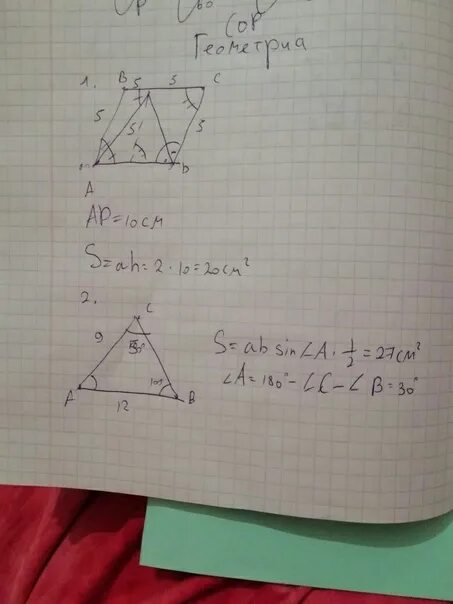 СОР
Геометриа
1.
B 5 5 C
5 5 5
A D
AD=10см
S=ah=2·10=20см²
2.
C
9
A 12 B
S=ab sin∠A·1/2=27см²
∠A=180°-∠C-∠B=30°